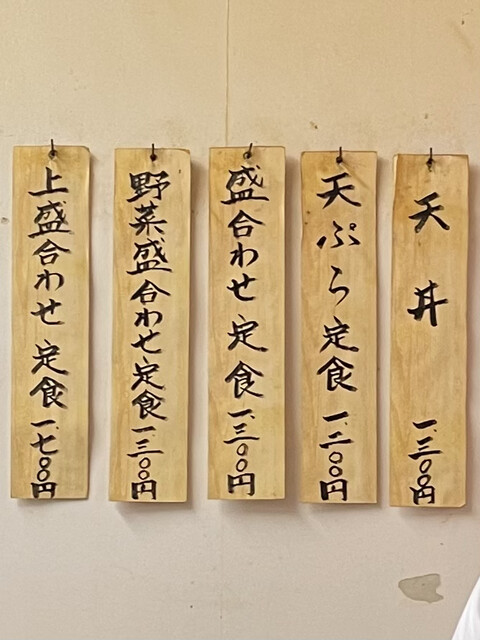 天丼 一、三〇〇円
天ぷら定食 一、三〇〇円
盛合わせ定食 一、三〇〇円
野菜盛合わせ定食 一、三〇〇円
上盛合わせ定食 一、七〇〇円